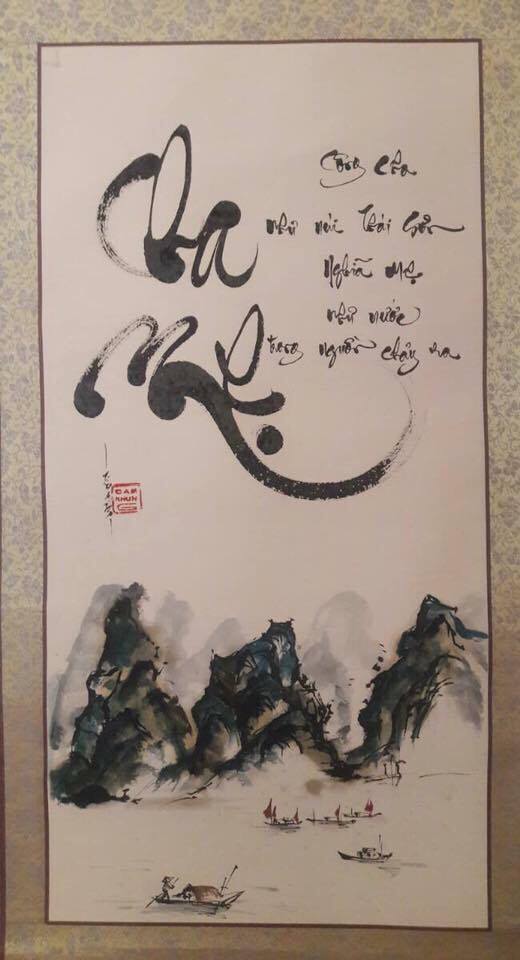 Cha
Mẹ
Công cha
như núi Thái Sơn
Nghĩa mẹ
như nước
trong nguồn chảy ra
NHUN
G